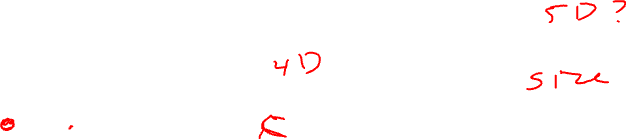 5D?
4D
size